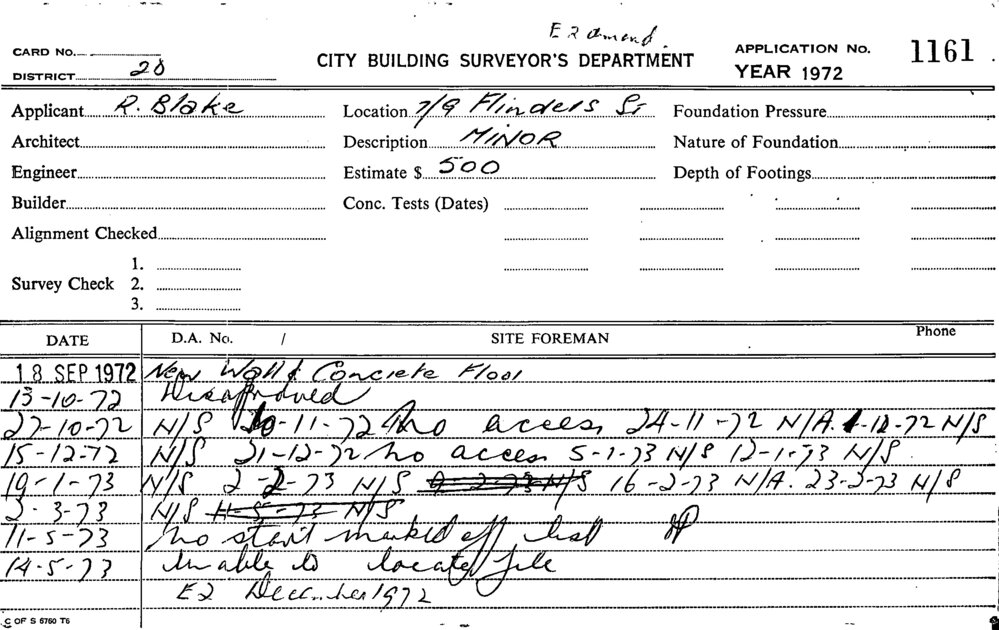 E2 amend.
CARD No.
CITY BUILDING SURVEYOR'S DEPARTMENT
APPLICATION No. 1161
DISTRICT 20
YEAR 1972
Applicant R. Blake Location 7/9 Flinders St Foundation Pressure
Architect Description MINOR Nature of Foundation
Engineer Estimate $ 500 Depth of Footings
Builder Conc. Tests (Dates)
Alignment Checked
1.
Survey Check 2.
3.
DATE D.A. No. / SITE FOREMAN Phone
18 SEP 1972 New Wall & Concrete Floor
13-10-72 Disapproved
27-10-72 N/S 10-11-72 No access 24-11-72 N/A. 1-12-72 N/S
15-12-72 N/S 21-12-72 no access 5-1-73 N/S 12-1-73 N/S
19-1-73 N/S 2-2-73 N/S 9-2-73 N/S 16-2-73 N/A. 23-2-73 N/S
2-3-73 N/S 11-5-73 N/S
11-5-73 No start marked off list
14-5-73 Unable to locate file
E2 December 1972
C OF S 6760 T6